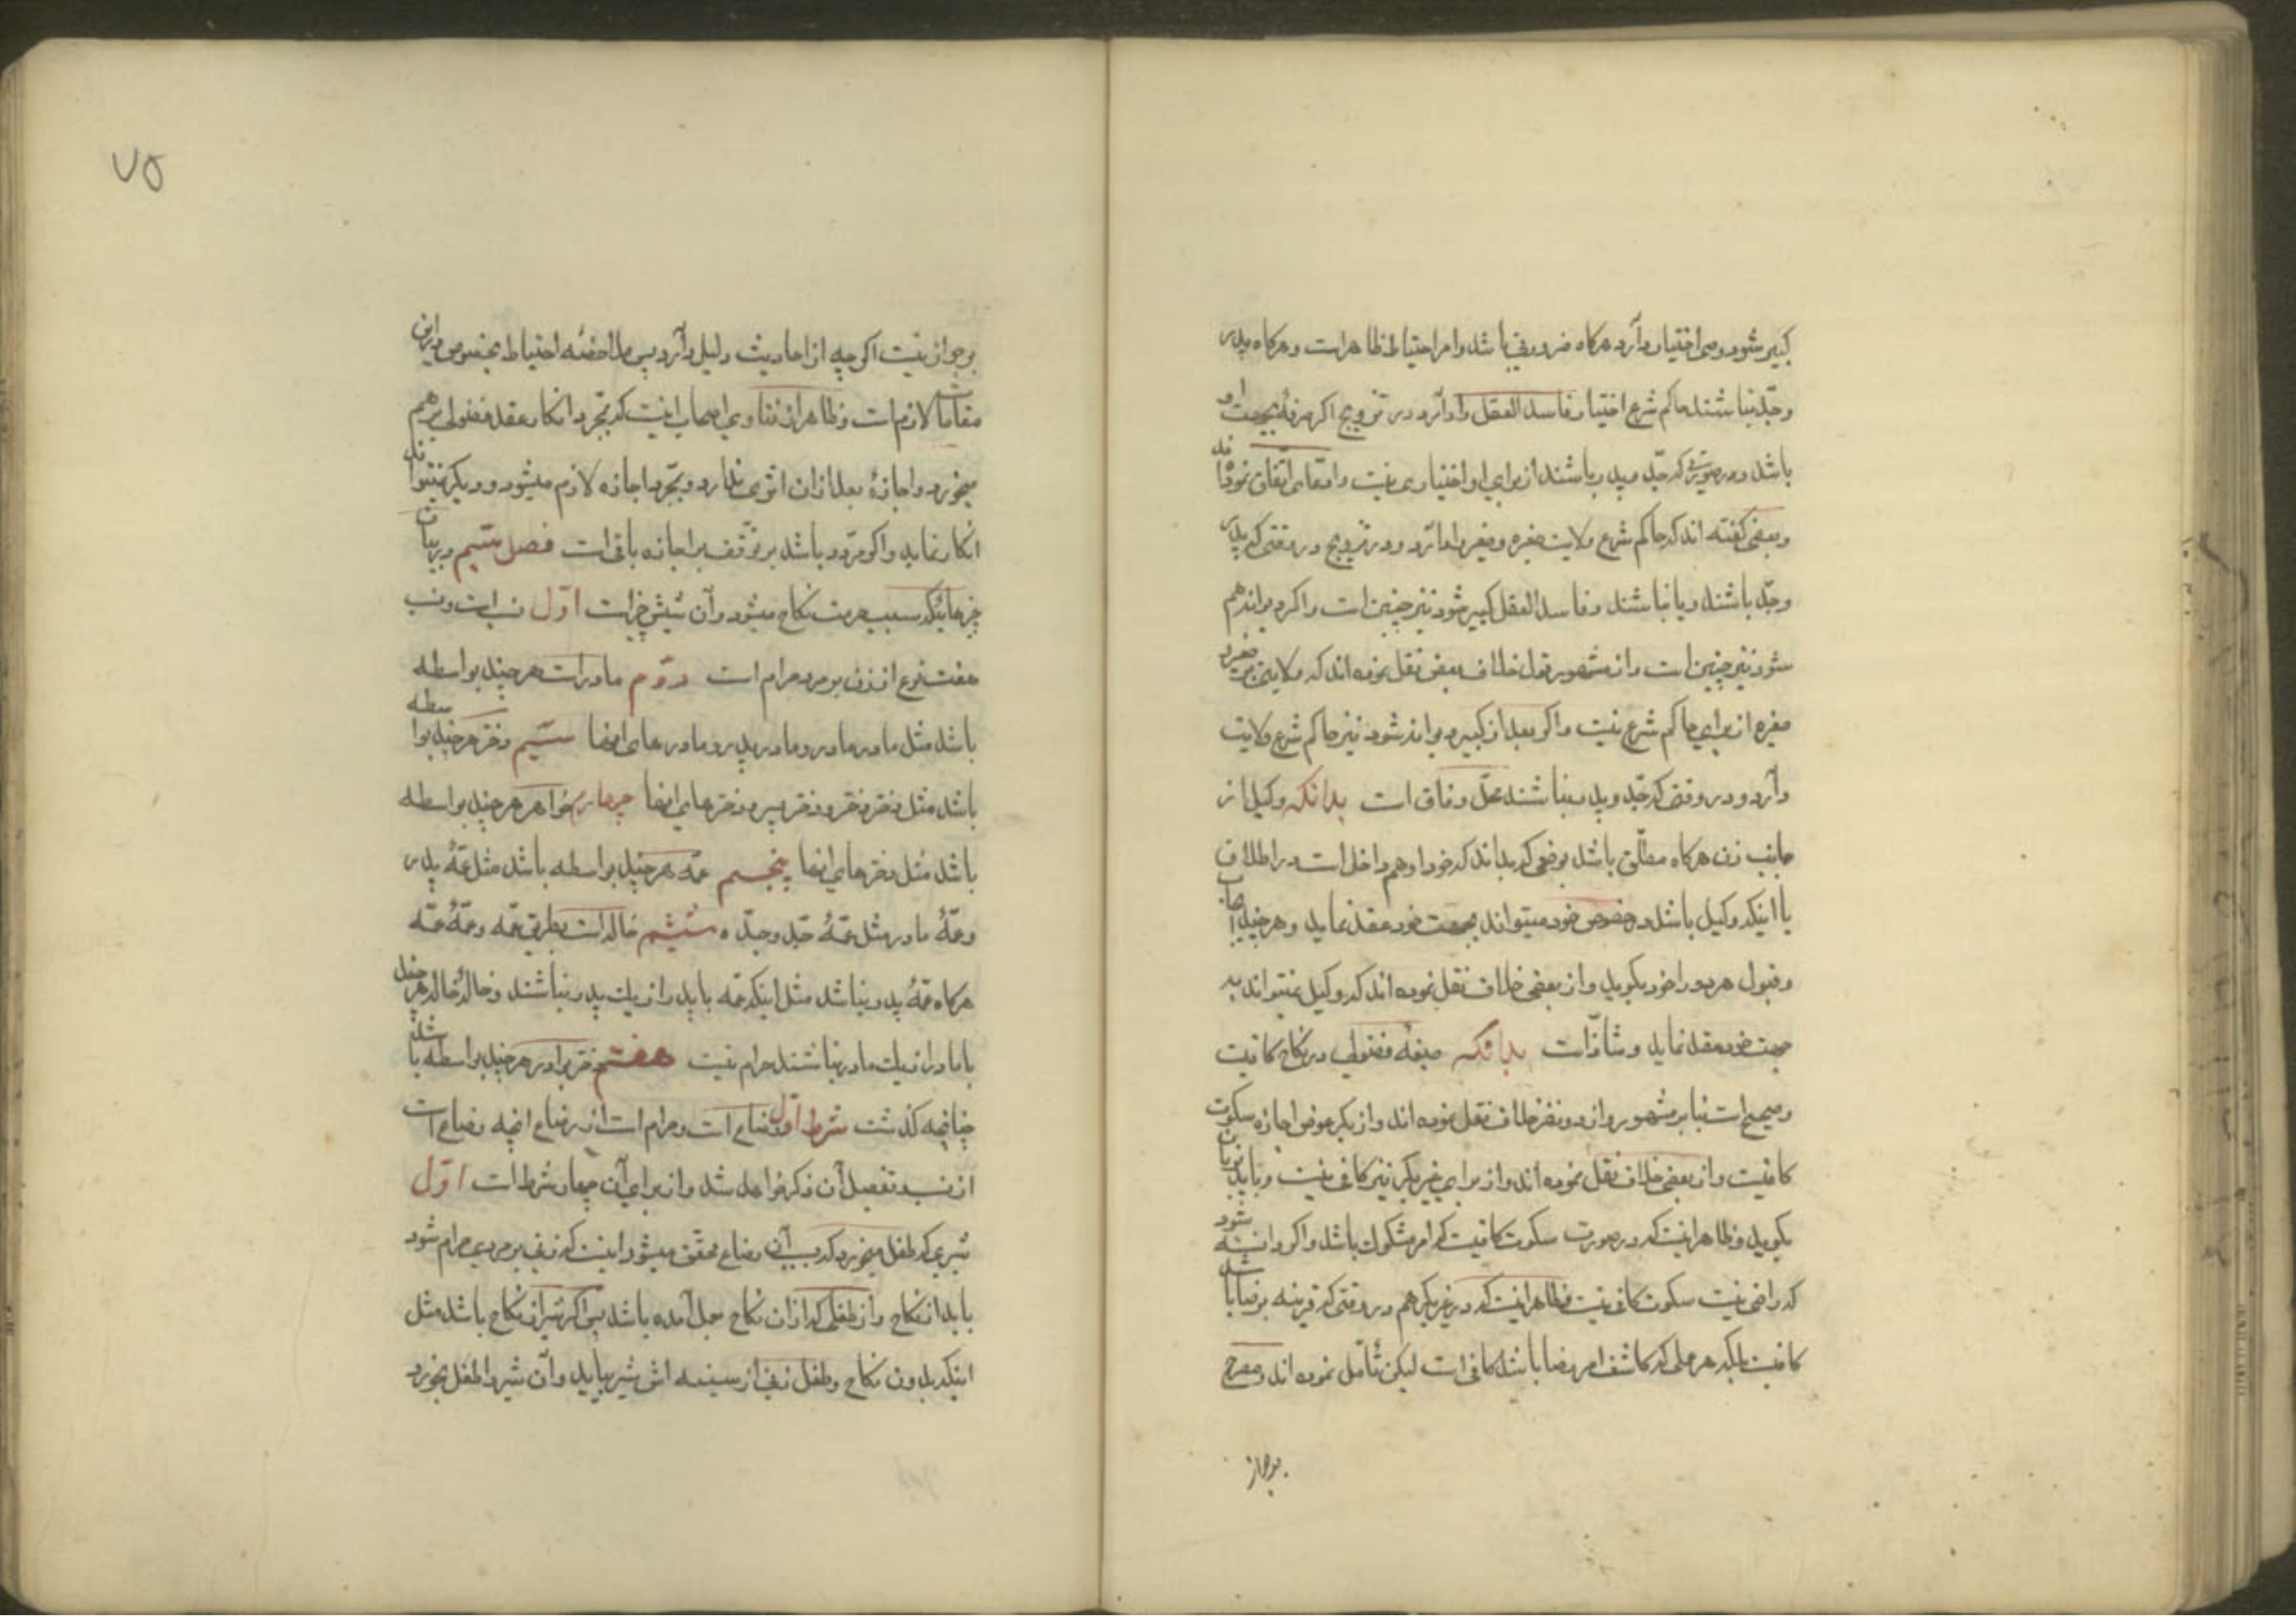 کبیر شود وصی اختیار دارد هرکاه ضرور باشد وامر احتیاط ظاهر است وهرکاه پدر
وجدّ نباشند حاکم شرع اختیار فاسد العقل را دارد در تزویج اکر صرفه بجهت او
باشد ودر صورتی که جدّ وپدر باشند از برای او اختیاری نیست وادّعای اتّفاق نموده‌اند
وبعضی کفته اند که حاکم شرع ولایت صغیره وصغیر را دارد ودر تزویج در وقتی که پدر
وجدّ باشند ویا نباشند وفاسد العقل کبیر شود نیز چنین است واکر دیوانه هم
شود نیز چنین است واز مشهور نقل خلاف بعضی نقل نموده اند که ولایتی بر صغیر و
صغیره از برای حاکم شرع نیست واکر بعد از کبیر دیوانه شود نیز حاکم شرع ولایت
دارد ودر وقتی که جدّ وپدر نباشند محلّ وفاق است بدانکه وکیل از
جانب زن هرکاه مطلّق باشد بوضعی که بداند که خود او هم داخل است در اطلاق
یا اینکه وکیل باشد در خصوص خود میتواند بجهت خود عقد نماید وهر چند ایجاب
وقبول هر دو را خود بکوید واز بعضی خلاف نقل نموده اند که وکیل نمیتواند به
جهت خود عقد نماید وشاذّ است بدانکه صیغه فضولی در نکاح کافیست
وصحیح است بنا بر مشهور واز دو نفر خلاف نقل نموده اند واز بکر عوض اجازه سکوت
کافیست واز بعضی خلاف نقل نموده اند واز برای غیر بکر نیز کافی نیست وباید بزبان
بکوید وظاهر اینست که در صورت سکوت کافیست که امر مشکوک باشد واکر دانسته شود
که راضی نیست سکوت کافی نیست وظاهر اینست که در غیر بکر هم در وقتی که قرینه بر رضا باشد
کافیست بلکه هر عملی که کاشف امر رضا باشد کافی است لیکن تأمّل نموده اند ومصرح
برجواز
۷۵
برجواز نیست اکرچه از احادیث دلیل دارد پس ملاحضه احتیاط بخصوص در این
مقامات لازم است وظاهر از فتاوی اصحاب اینست که بمجرد انکار عقد فضولی برهم
میخورد واجازهٔ بعد از آن اثری ندارد وبمجرّد اجازه لازم میشود ودیکر نمیتواند
انکار نماید واکر مردّد باشد بر توقف بر اجازه باقی است فصل سیّم در بیان
چیزهائیکه سبب حرمت نکاح میشود وآن شش چیز است اوّل نسب است ونسب
هفت نوع از زن بر مرد حرام است دوّم مادر است هر چند بواسطه
باشد مثل مادر مادر ومادر پدر ومادرهای اینها سیّم دختر هر چند بواسطه
باشد مثل دختر دختر ودختر پسر ودخترهای اینها چهارم خواهر هر چند بواسطه
باشد مثل دخترهای اینها پنجم عمّه هر چند بواسطه باشد مثل عمّهٔ پدر
وعمّهٔ مادر مثل عمّهٔ جدّ وجدّه ششم خاله است بطریق عمّه وعمّهٔ عمّه
هرکاه عمّهٔ پدر نباشد مثل اینکه عمّه با پدر از یک پدر نباشند وخالهٔ خاله هر چند
با مادر از یک مادر نباشند حرام نیست هفتم دختر برادر هر چند بواسطه باشد
چنانچه کذشت شرط اوّل رضاع است وحرام است از رضاع انچه رضاع است
از نسب تفصیل آن ذکر خواهد شد واز برای آن چهار شرط است اوّل
شیری که طفل میخورد که بسبب آن رضاع محقّق میشود اینست که زنی بر مردی حرام شود
باید از نکاح واز طفلی که از آن نکاح بعمل آمده باشد پس اکر شیر از نکاح باشد مثل
اینکه بدون نکاح وطفل زنی از سینه اش شیر بیاید وآن شیر را طفل بخورد